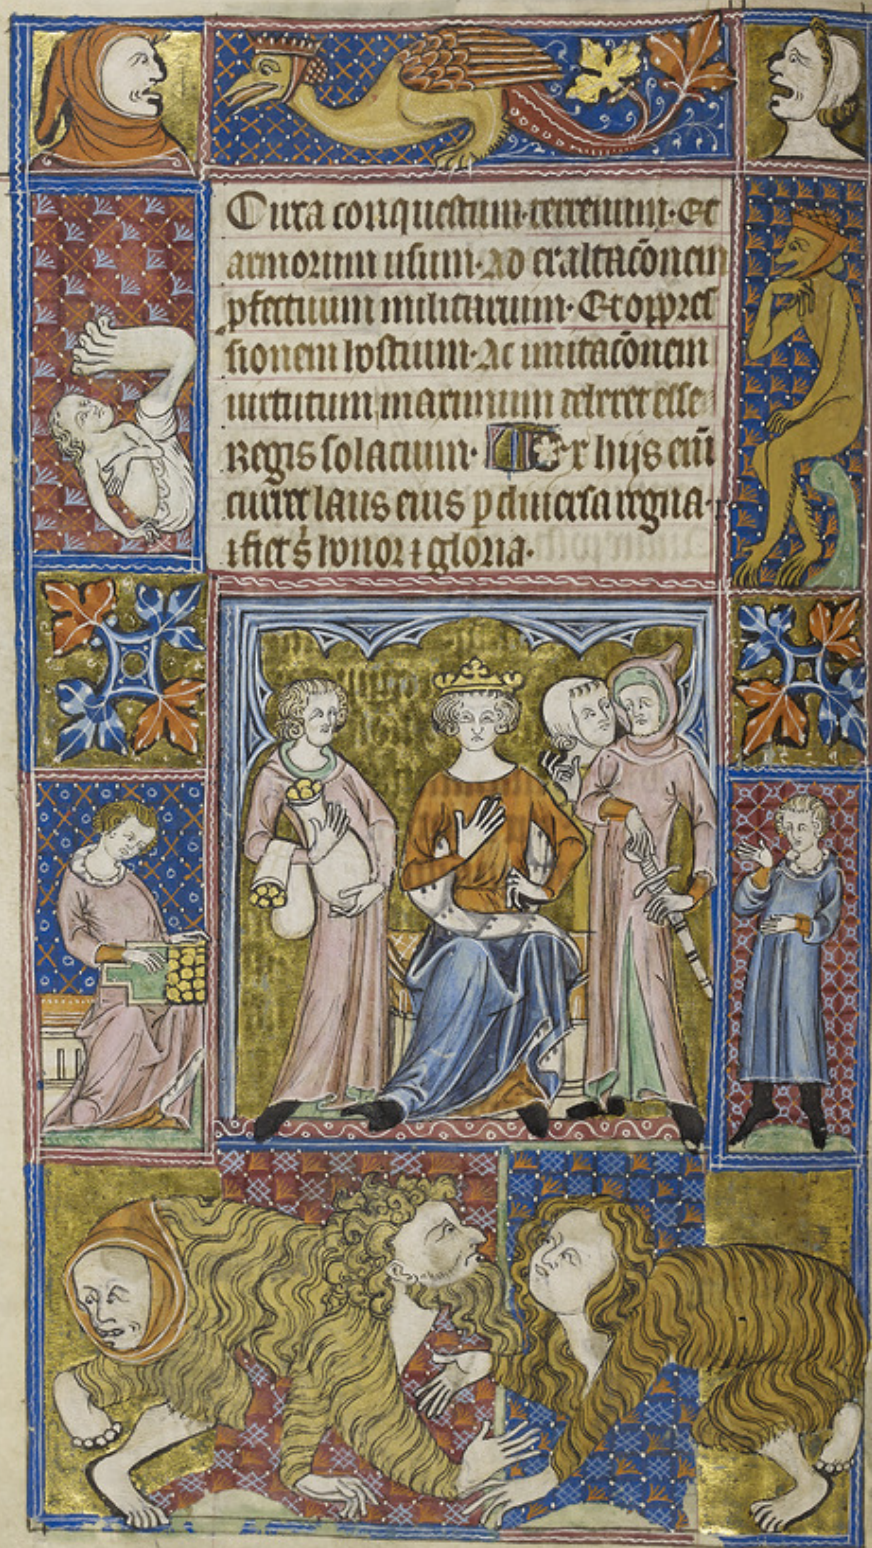 Cura conquestum terrenum. Et
armorum usum. Ad exaltacōnem
ꝑfectuum militarium. Et oppres
sionem hostium. Ac imitacōnem
uirtutum maximum deberet esse
Regis solacium. Ex hijs eni̅
curret laus eius ꝑ diuersa regna.
honor ⁊ gloria.